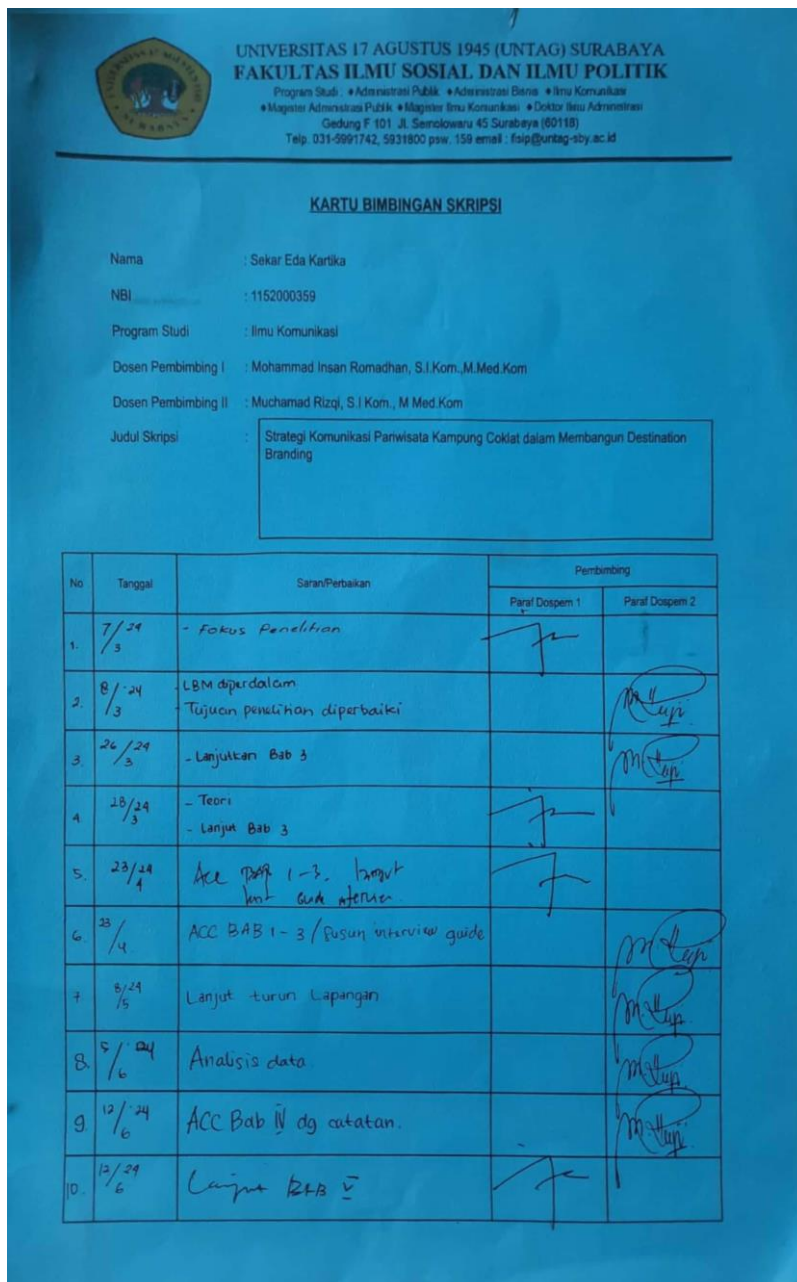 UNIVERSITAS 17 AGUSTUS 1945 (UNTAG) SURABAYA
FAKULTAS ILMU SOSIAL DAN ILMU POLITIK
Program Studi : ♦ Administrasi Publik ♦ Administrasi Bisnis ♦ Ilmu Komunikasi
♦ Magister Administrasi Publik ♦ Magister Ilmu Komunikasi ♦ Doktor Ilmu Administrasi
Gedung F 101 Jl. Semolowaru 45 Surabaya (60118)
Telp. 031-5991742, 5931800 psw. 159 email : fisip@untag-sby.ac.id
KARTU BIMBINGAN SKRIPSI
Nama : Sekar Eda Kartika
NBI : 1152000359
Program Studi : Ilmu Komunikasi
Dosen Pembimbing I : Mohammad Insan Romadhan, S.I.Kom.,M.Med.Kom
Dosen Pembimbing II : Muchamad Rizqi, S.I Kom., M Med.Kom
Judul Skripsi : Strategi Komunikasi Pariwisata Kampung Coklat dalam Membangun Destination
Branding
No Tanggal Saran/Perbaikan Pembimbing
Paraf Dospem 1 Paraf Dospem 2
1. 7/3 24 - Fokus Penelitian
2. 8/3 '24 - LBM diperdalam
- Tujuan penelitian diperbaiki
3. 26/3 24 - Lanjutkan Bab 3
4. 28/3 24 - Teori
- Lanjut Bab 3
5. 23/4 24 Acc BAB 1-3. lanjut
6. 23/4 ACC BAB 1-3 / Susun interview guide
7. 8/5 24 Lanjut turun Lapangan
8. 5/6 '24 Analisis data
9. 12/6 '24 ACC Bab IV dg catatan.
10. 12/6 24 Lanjut BAB V